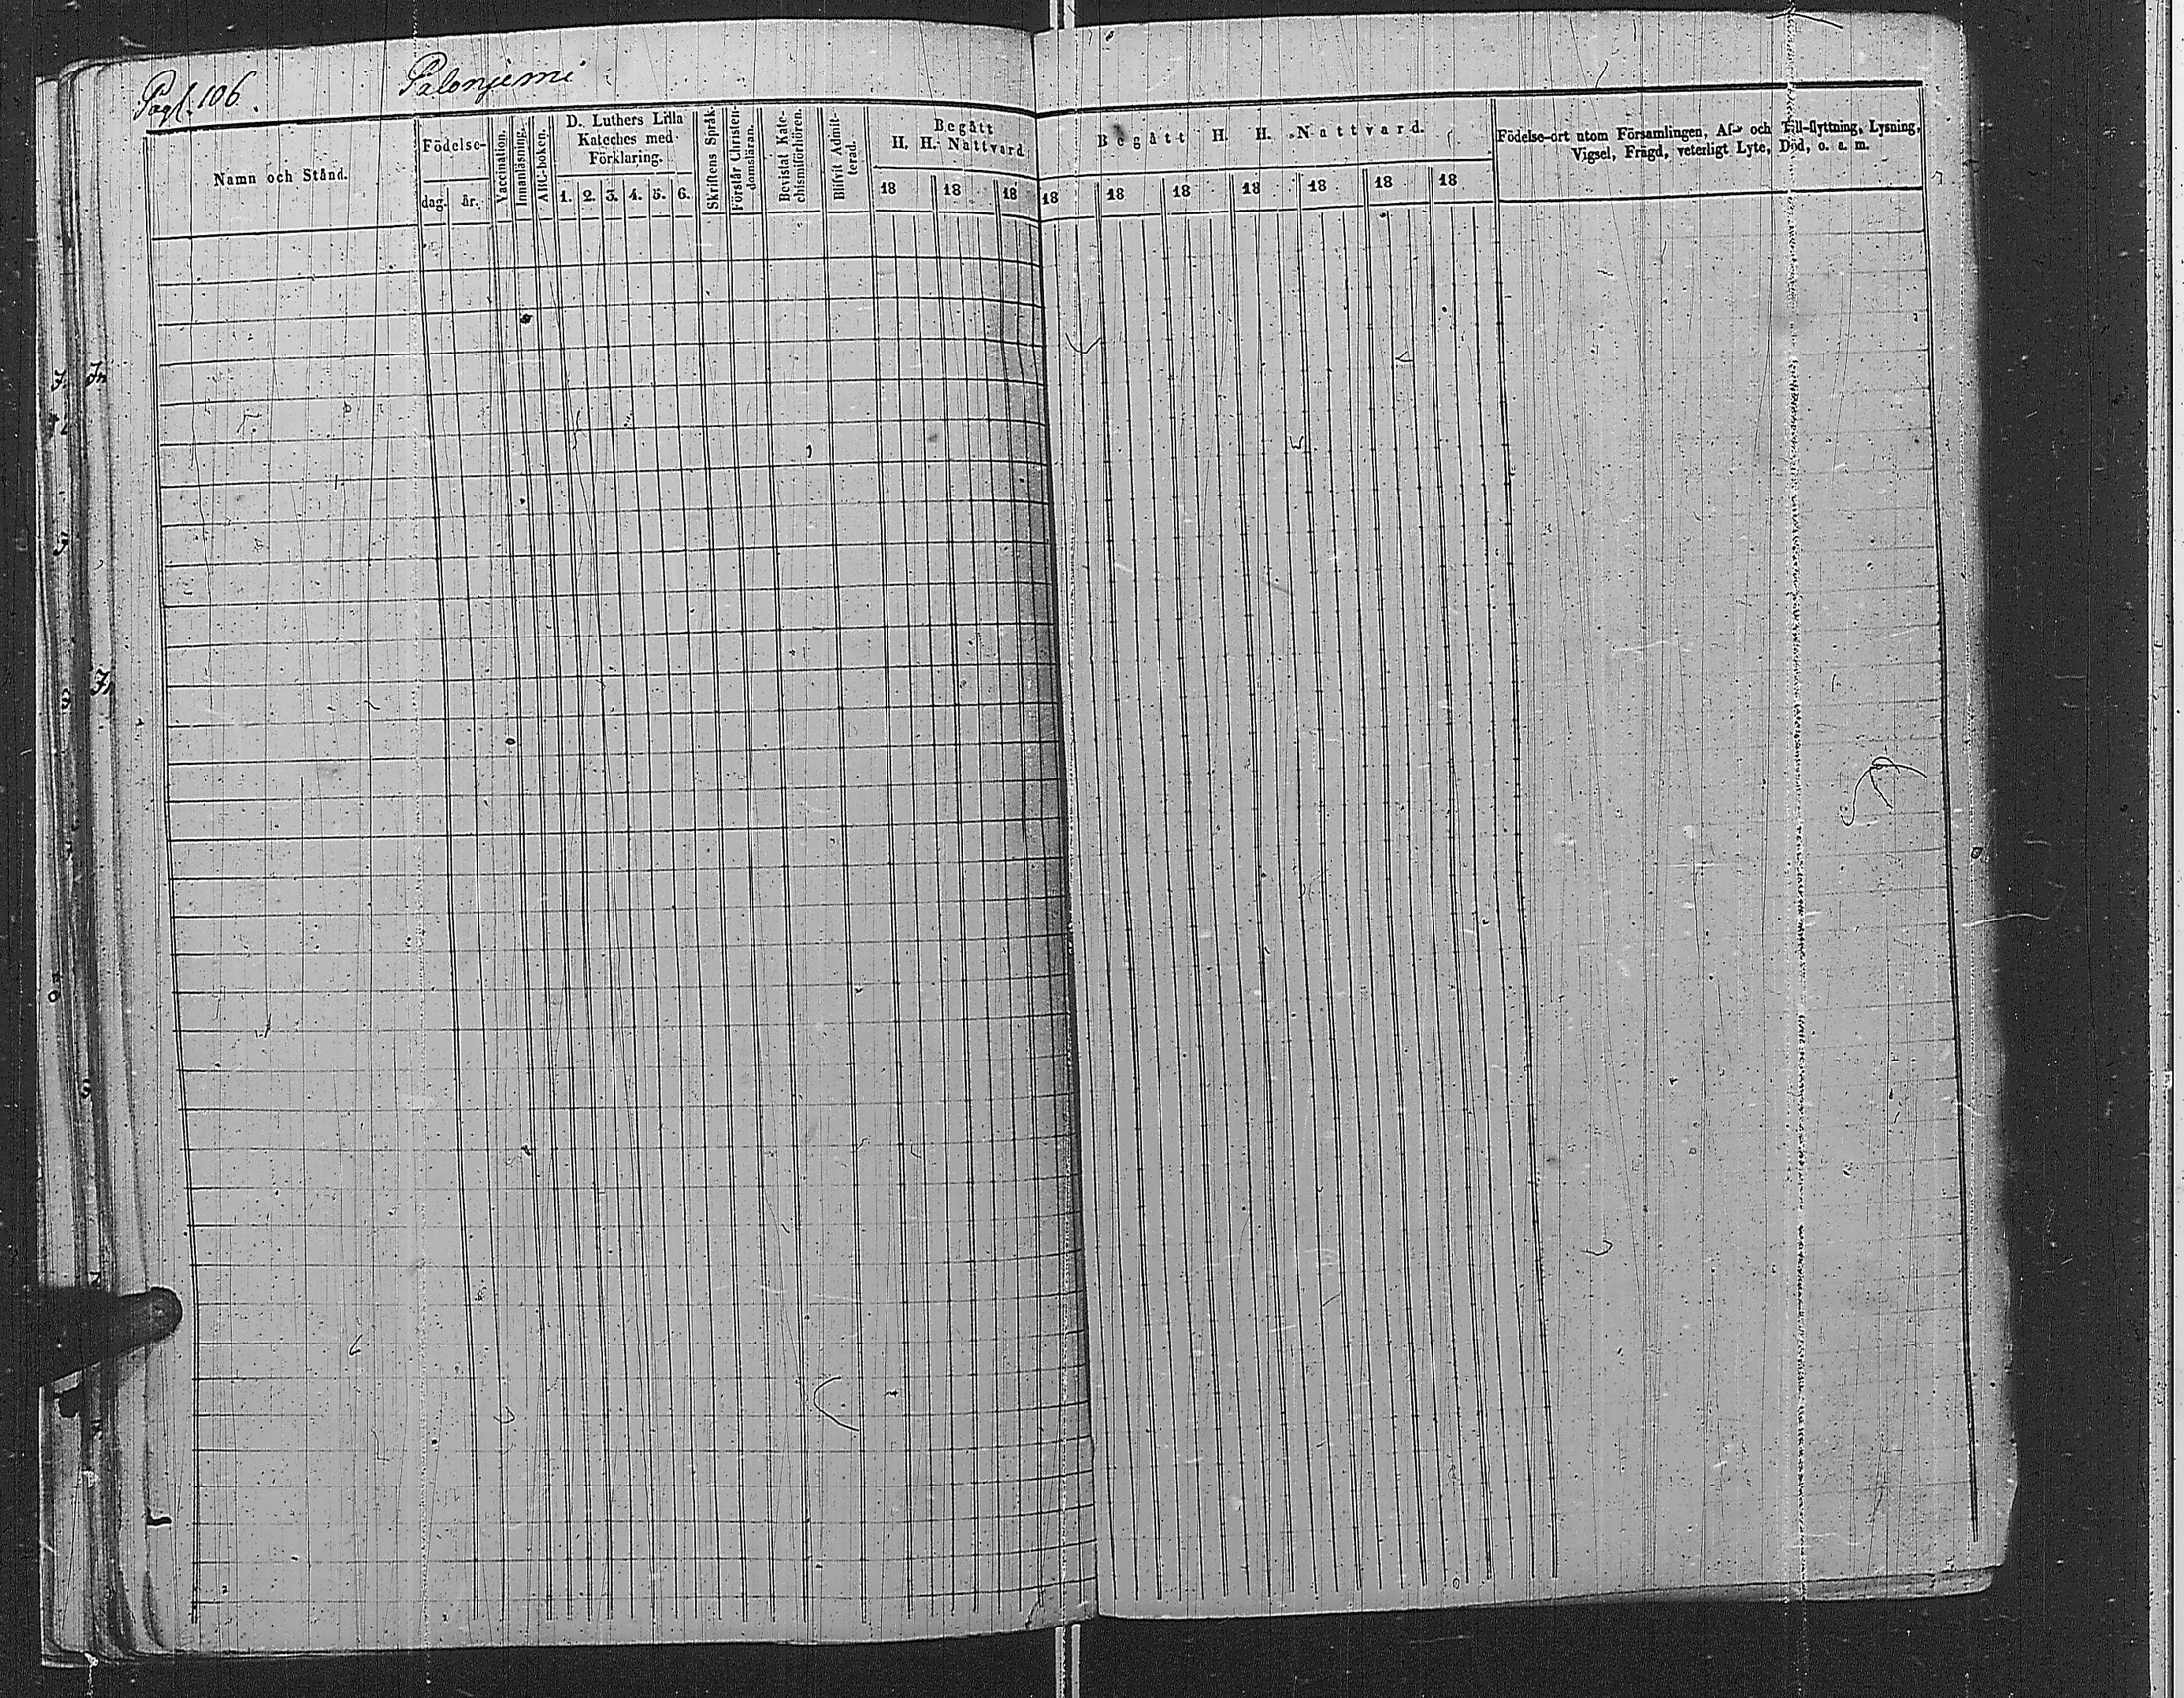 Pagl. 106. Palonjemi
Namn och Stånd.
Födelse-
dag. år.
Vaccination.
Innanläsning.
ABC-boken.
D. Luthers Lilla
Kateches med
Förklaring.
1. 2. 3. 4. 5. 6.
Skriftens Språk.
Förstår Christen-
domsläran.
Bevistat Kate-
chismiförhören.
Blifvit Admit-
terad.
Begått
H. H. Nattvard.
18 18 18
Begått H. H. Nattvard.
18 18 18 18 18 18 18
Födelse-ort utom Församlingen, Af- och Till-flyttning, Lysning,
Vigsel, Frägd, veterligt Lyte, Död, o. a. m.